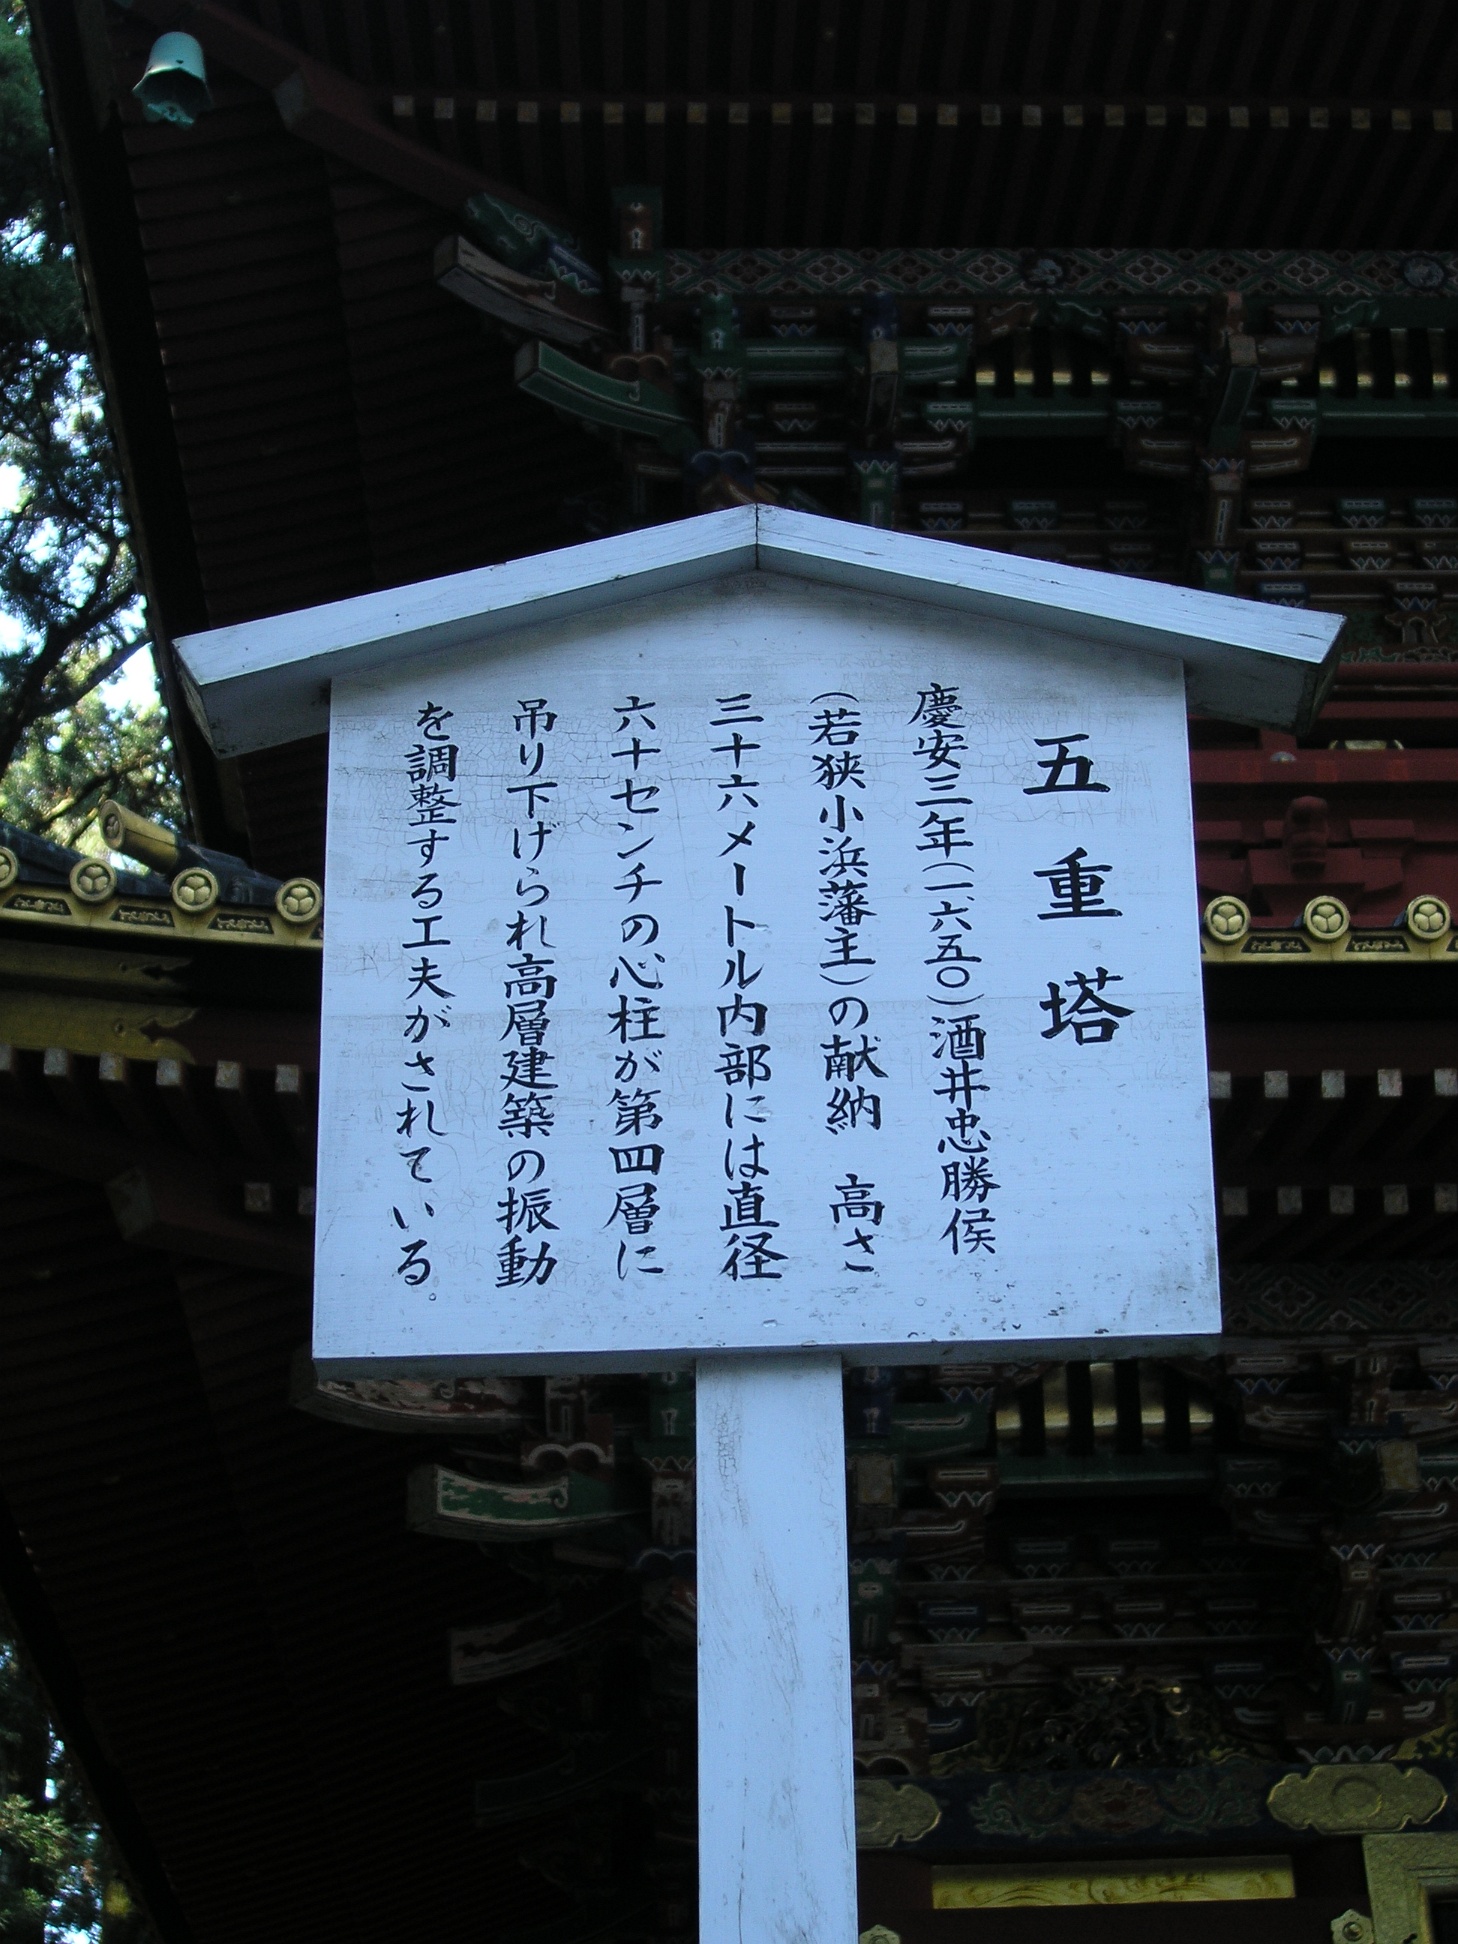 五重塔
慶安三年(一六五〇)酒井忠勝侯
(若狭小浜藩主)の献納　高さ
三十六メートル内部には直径
六十センチの心柱が第四層に
吊り下げられ高層建築の振動
を調整する工夫がされている。